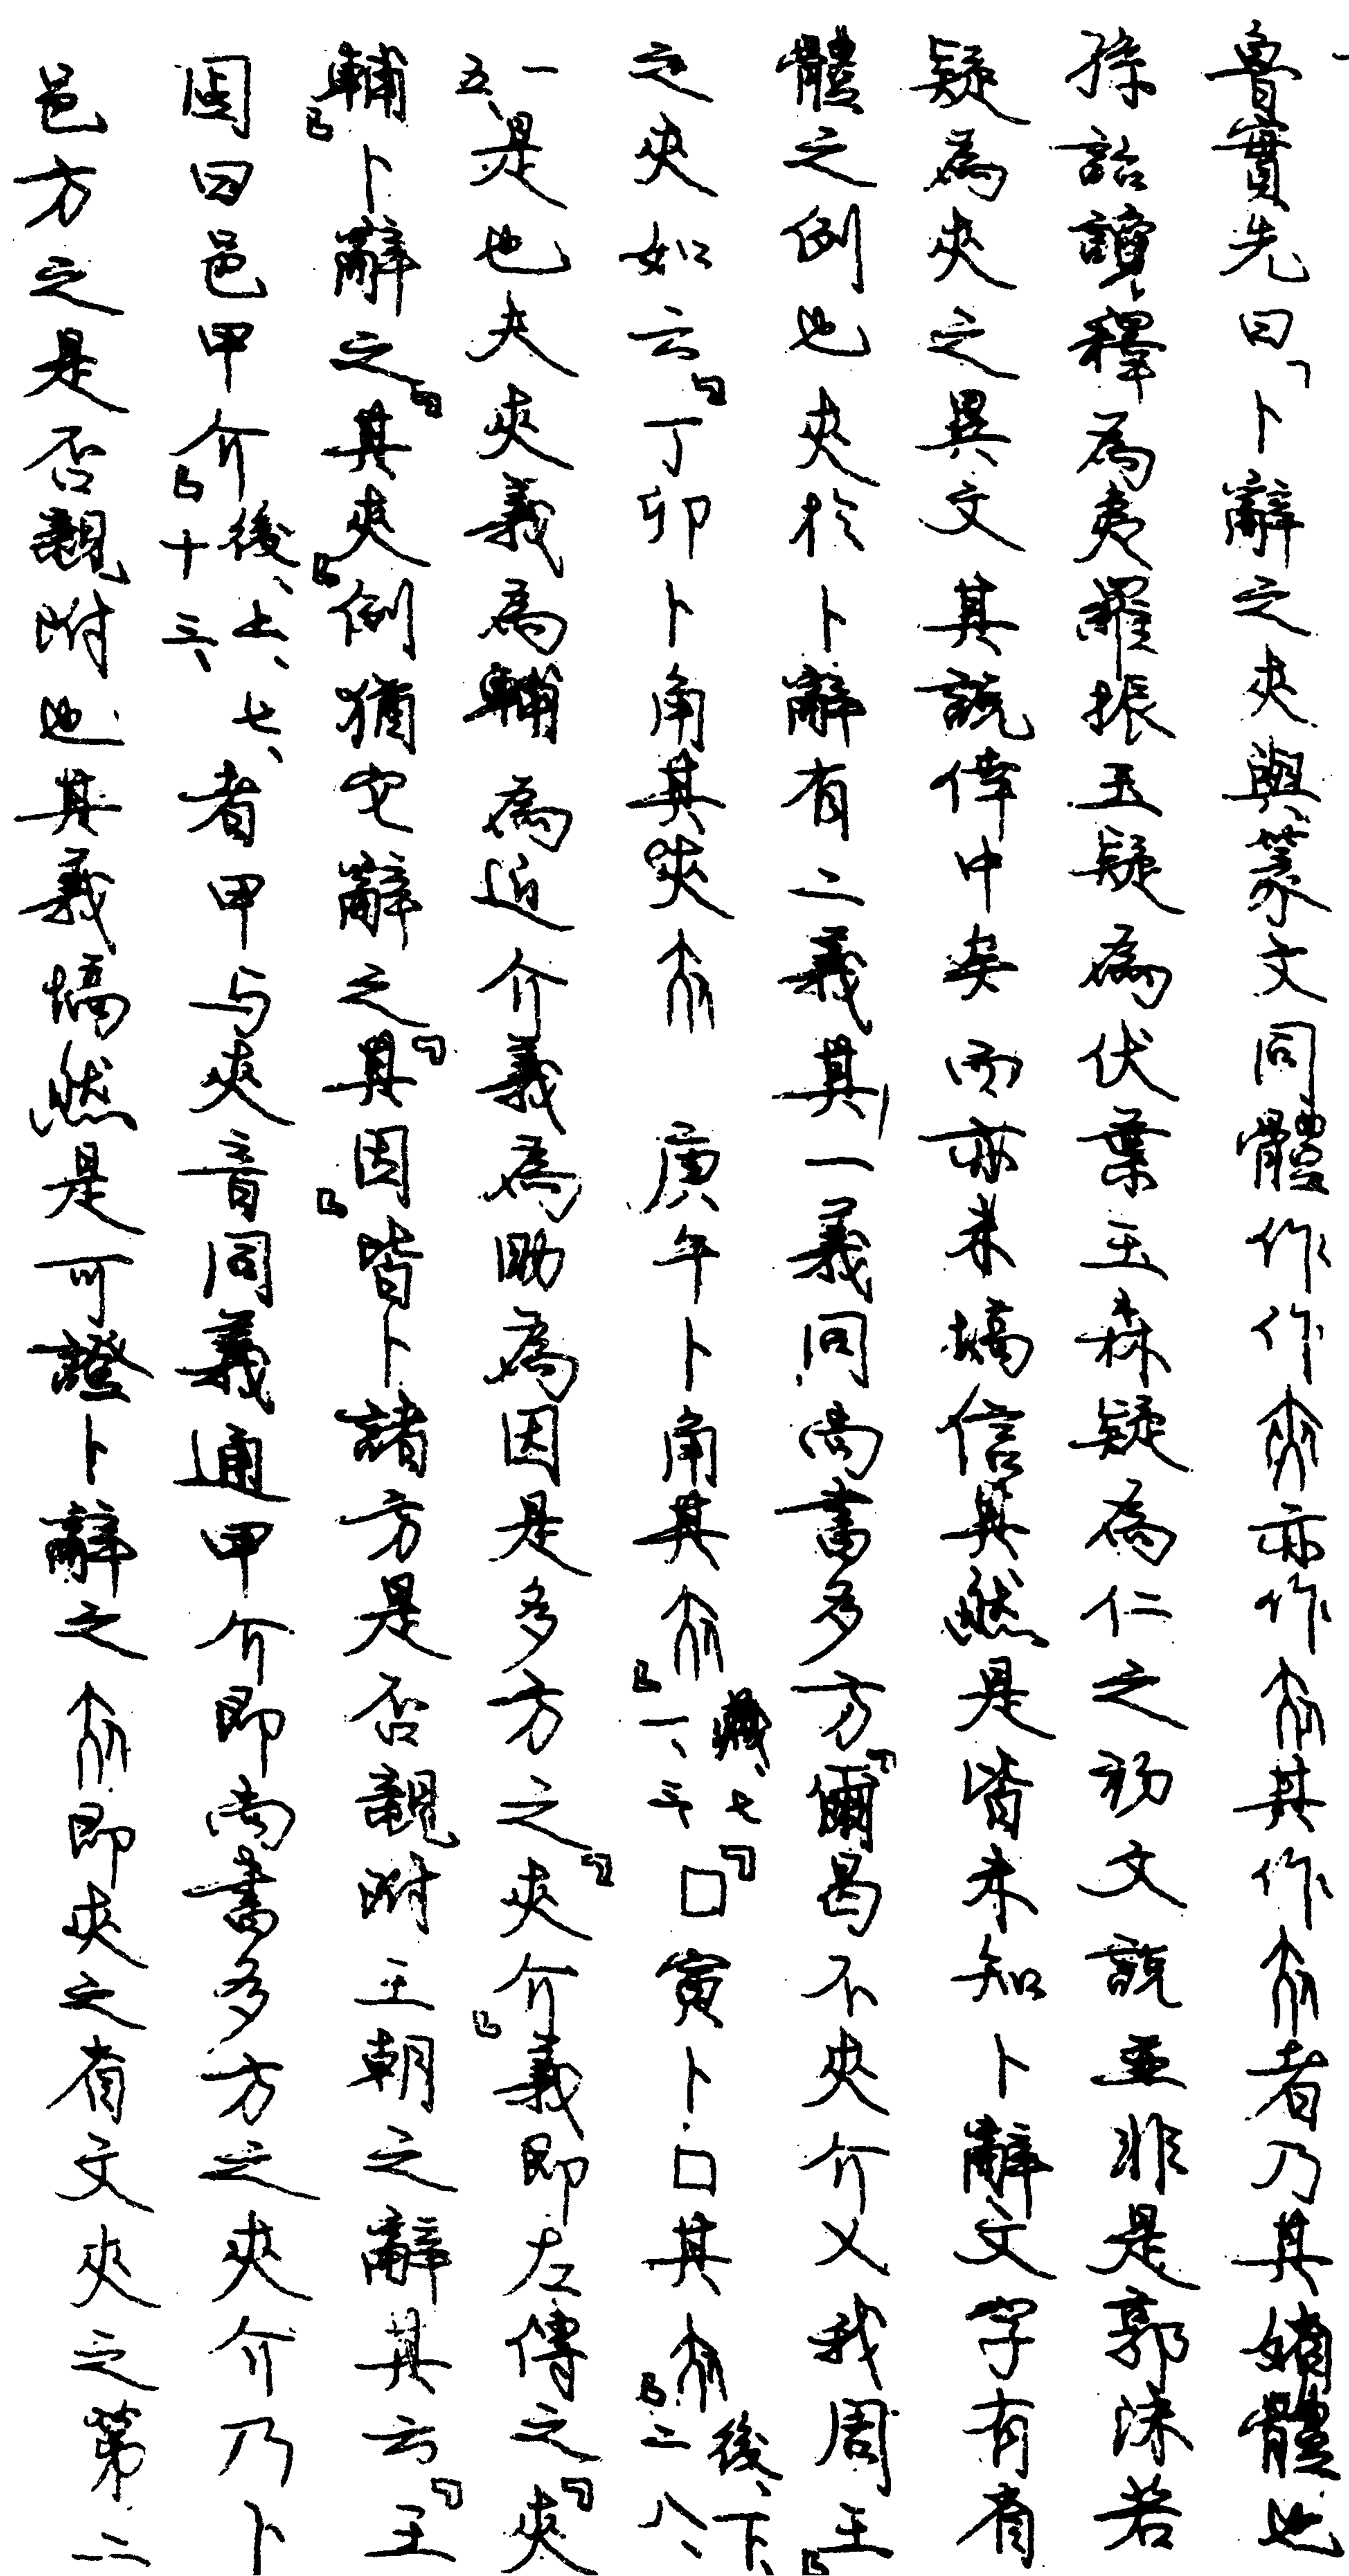 魯實先曰「卜辭之夾與篆文同體作作夾亦作其作者乃其㛮體也
孫詒讓釋為夷羅振玉疑為伏葉玉森疑為仁之初文說並非是郭沫若
疑為夾之異文其說倖中矣而亦未塙信其然是皆未知卜辭文字有㛮
體之例也夾於卜辭有二義其一義同尚書多方『爾曷不夾介乂我周王』
之夾如云『丁卯卜角其夾 庚午卜角其』藏、七一、三『囗寅卜囗其』後、下、二八、
一五、是也夫夾義為輔為近介義為助為因是多方之『夾介』義即左傳之『夾
輔』卜辭之『其夾』例猶它辭之『其因』皆卜諸方是否親附王朝之辭其云『王
固曰邑甲介』後、上、七、十三、者甲与夾音同義通甲介即尚書多方之夾介乃卜
邑方之是否親附也其義塙然是可證卜辭之即夾之㛮文夾之第二